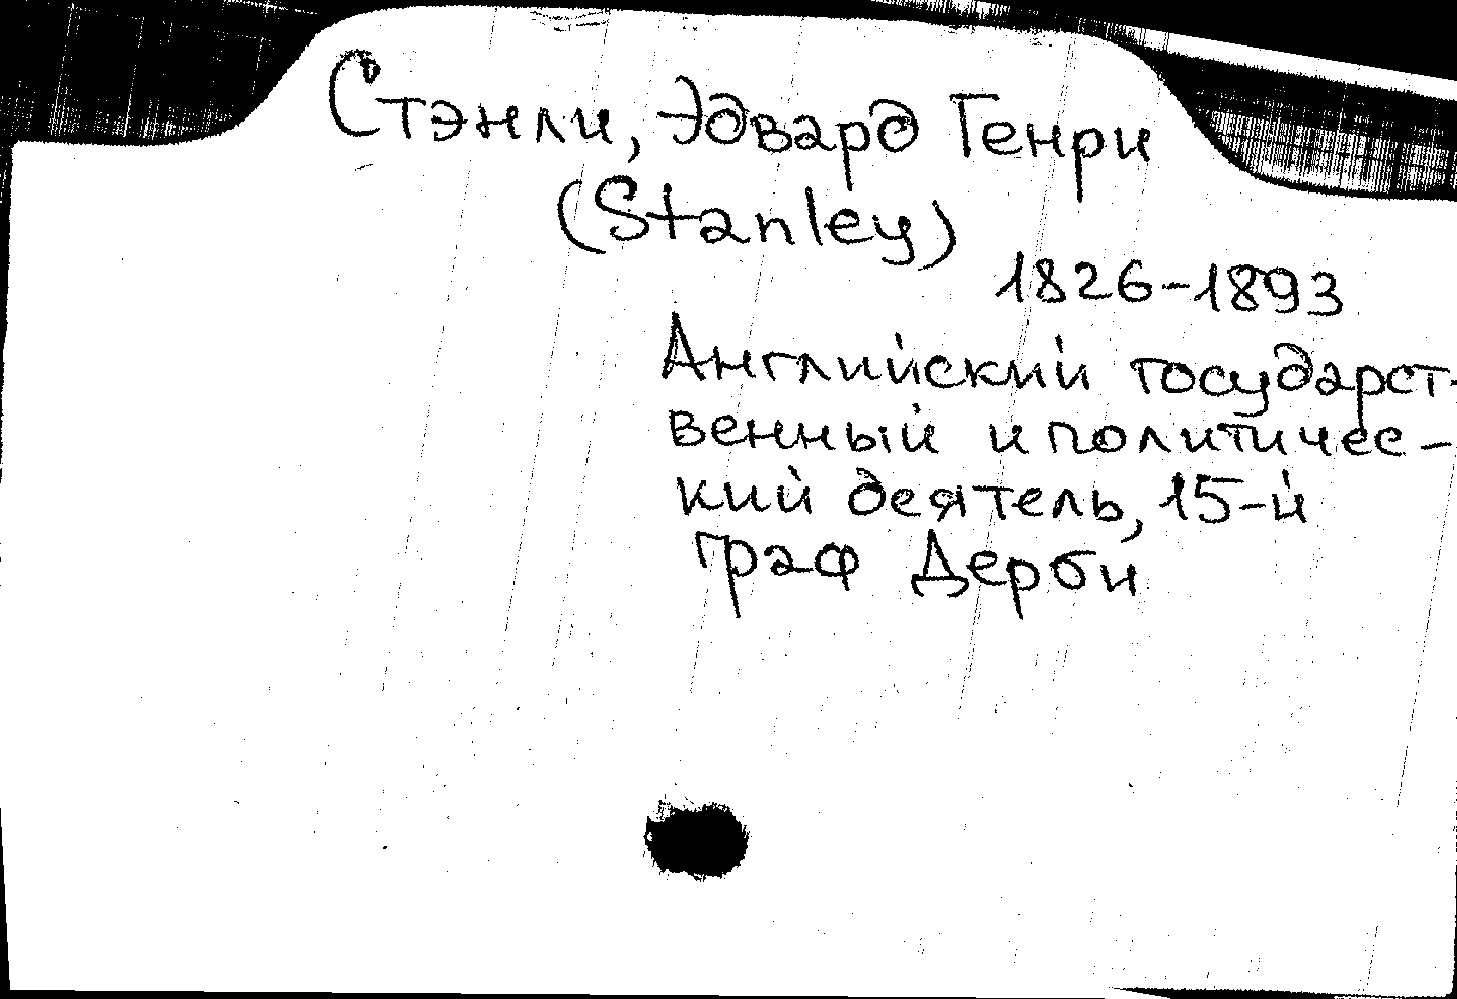 Стэнли, Эдвард Генри
(Stanley)
1826-1893
Английский государст-
венный и политичес-
кий деятель, 15-й
граф Дерби